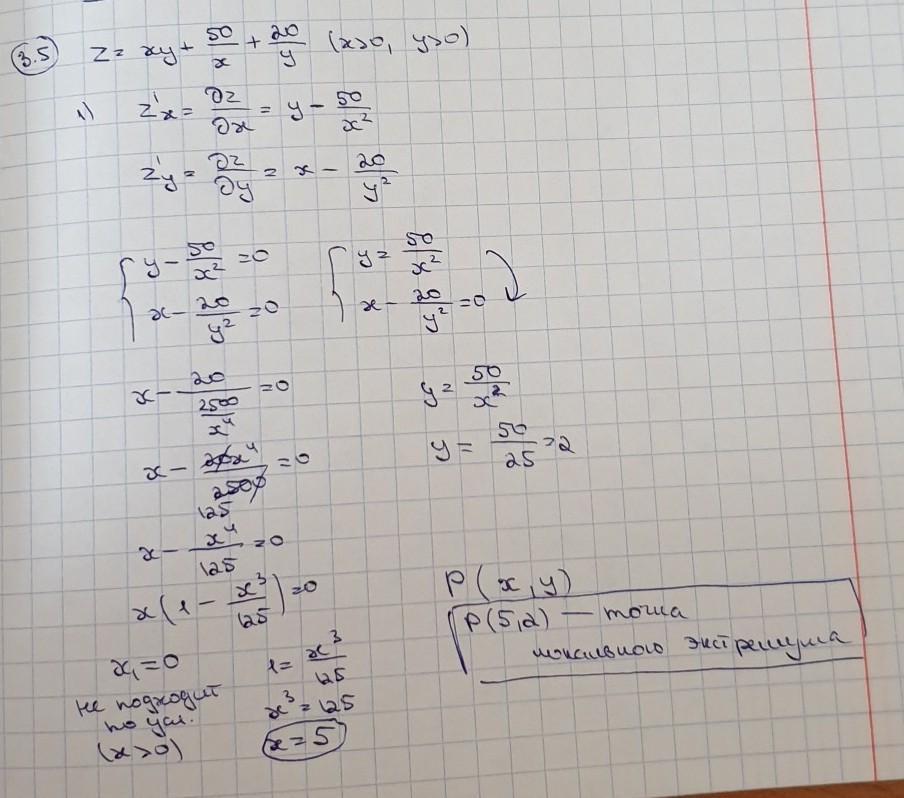 3.5 z = xy + 50/x + 20/y (x>0, y>0)
1) z'x = ∂z/∂x = y - 50/x²
z'y = ∂z/∂y = x - 20/y²
{ y - 50/x² = 0 { y = 50/x²
x - 20/y² = 0 x - 20/y² = 0
x - 20/(2500/x⁴) = 0 y = 50/x²
x - 20x⁴/2500 = 0 y = 50/25 = 2
125
x - x⁴/125 = 0
x(1 - x³/125) = 0
x₁ = 0 1 = x³/125
не подходит x³ = 125
по усл.
(x>0) x = 5
P(x, y)
P(5,2) — точка
локального экстремума